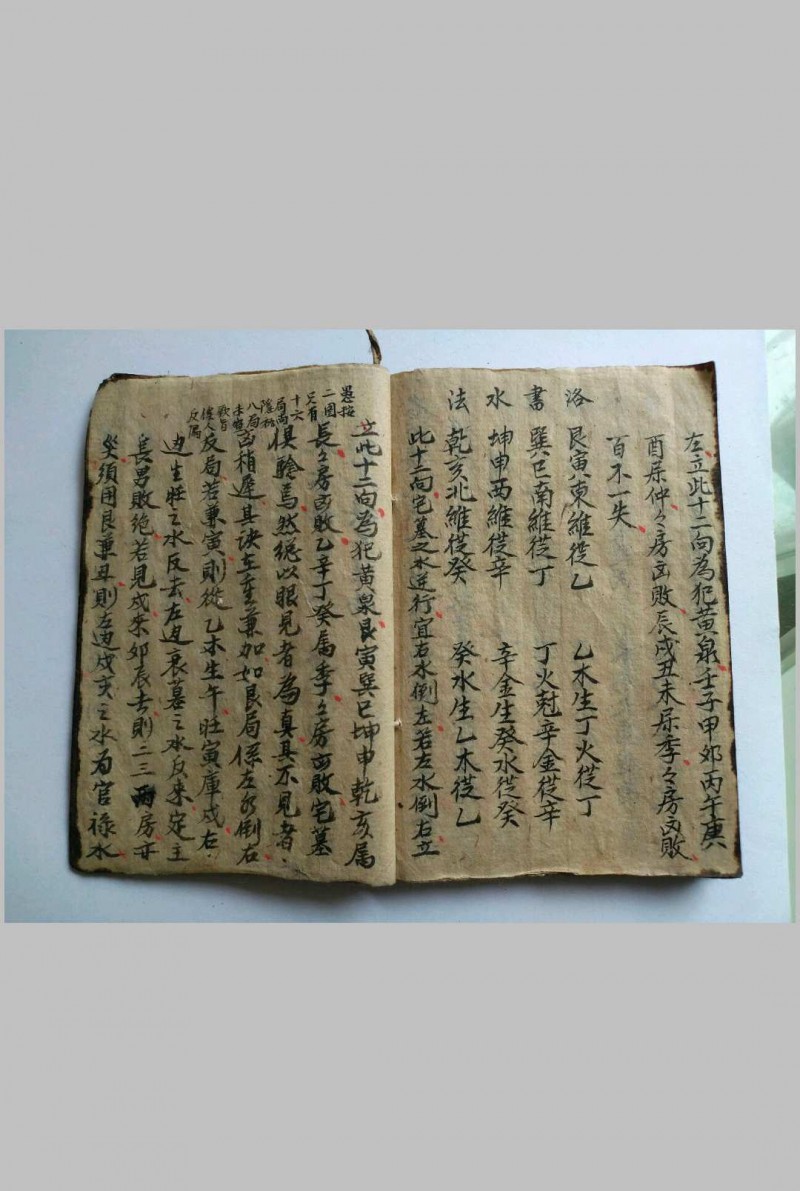 左立此十二向為犯黃泉壬子甲卯丙午庚
酉屬仲々房凶敗辰戌丑未屬季々房凶敗
百不一失
洛 艮寅東維從乙 乙木生丁火從丁
書 巽巳南維從丁 丁火尅辛金從辛
水 坤申西維從辛 辛金生癸水從癸
法 乾亥北維從癸 癸水生乙木從乙
此十二向宅墓之水逆行宜右水倒左若左水倒右立
立此十二向為犯黃泉艮寅巽巳坤申乾亥屬
長々房凶敗乙辛丁癸屬季々房凶敗宅墓
俱驗焉然總以眼見者為真其不見者
凶稍遲其訣在重兼加如艮局係左水倒右
反局若兼寅則從乙木生午旺寅庫戌右
邊生旺之水反去左邊衰墓之水反來定主
長男敗絕若見戌來卯辰去則二三兩房亦
發須用艮兼丑則左邊戌亥之水為官祿水
愚按
二圖
只有
十六
局尚
八局
反局